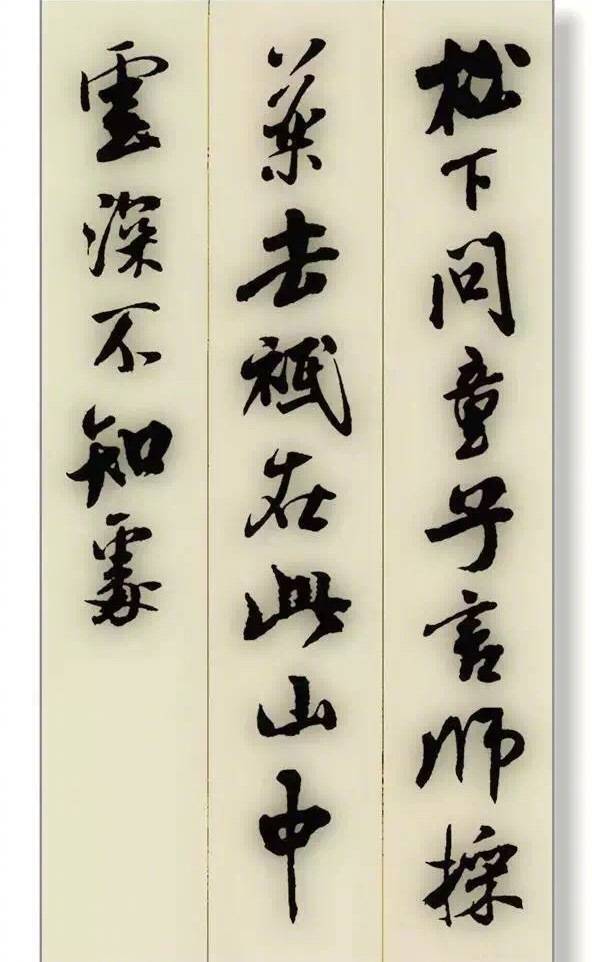 松下问童子言师採
葉去祇在此山中
雲深不知處